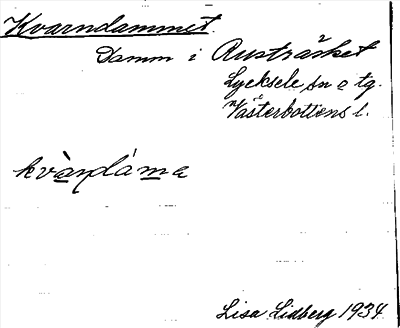 Kvarndammet.
Damm i Austräsket
Lycksele sn o tg.
Västerbottens l.
kvàndáma
Lisa Lidberg 1934.